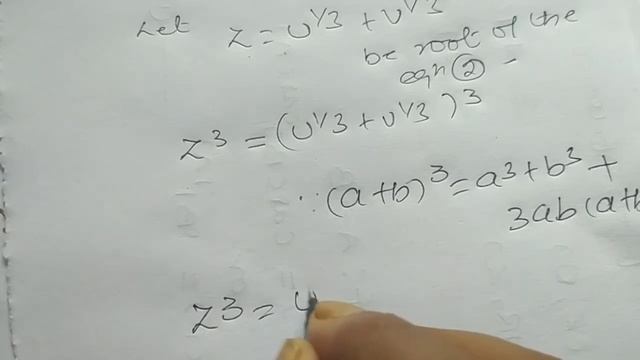 Let z = u^1/3 + v^1/3
be root of the
eqn ② -
z^3 = (u^1/3 + v^1/3)^3
∵ (a+b)^3 = a^3 + b^3 +
3ab(a+b
z^3 = u